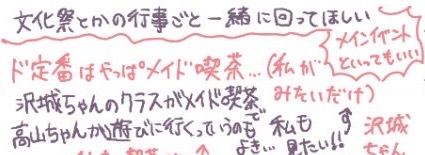 文化祭とかの行事ごと一緒に回ってほしい
メインイベント
といってもいい
ド定番はやっぱメイド喫茶…(私が
みたいだけ)
沢城ちゃんのクラスがメイド喫茶で
高山ちゃんが遊びに行くっていうのも
よき…
私も
見たい!!
沢城
ちゃん